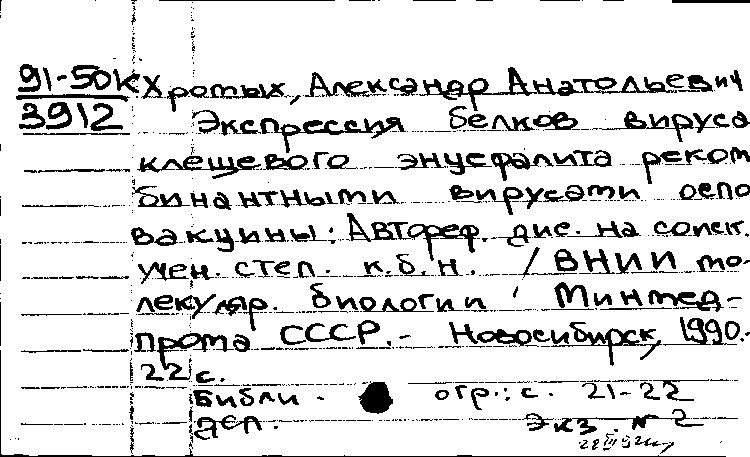 91-50К Хромых, Александр Анатольевич
3912 Экспрессия белков вируса
клещевого энцефалита реком
бинантными вирусами оспо
вакцины: Автореф. дис. на соиск.
учен. степ. к.б.н. / ВНИИ мо-
лекуляр. биологии Минмед-
прома СССР. - Новосибирск, 1990.-
22 с.
Библи - огр.: с. 21-22
деп. Экз. № 2